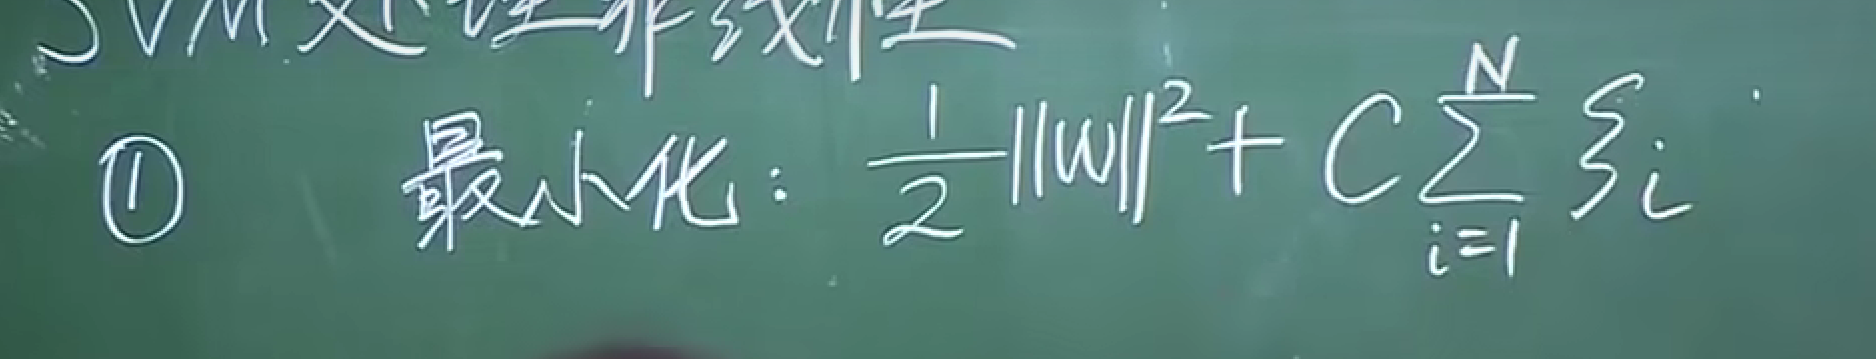 SVM处理非线性
① 最小化: 1/2 ||W||² + C ∑_{i=1}^{N} ξ_i